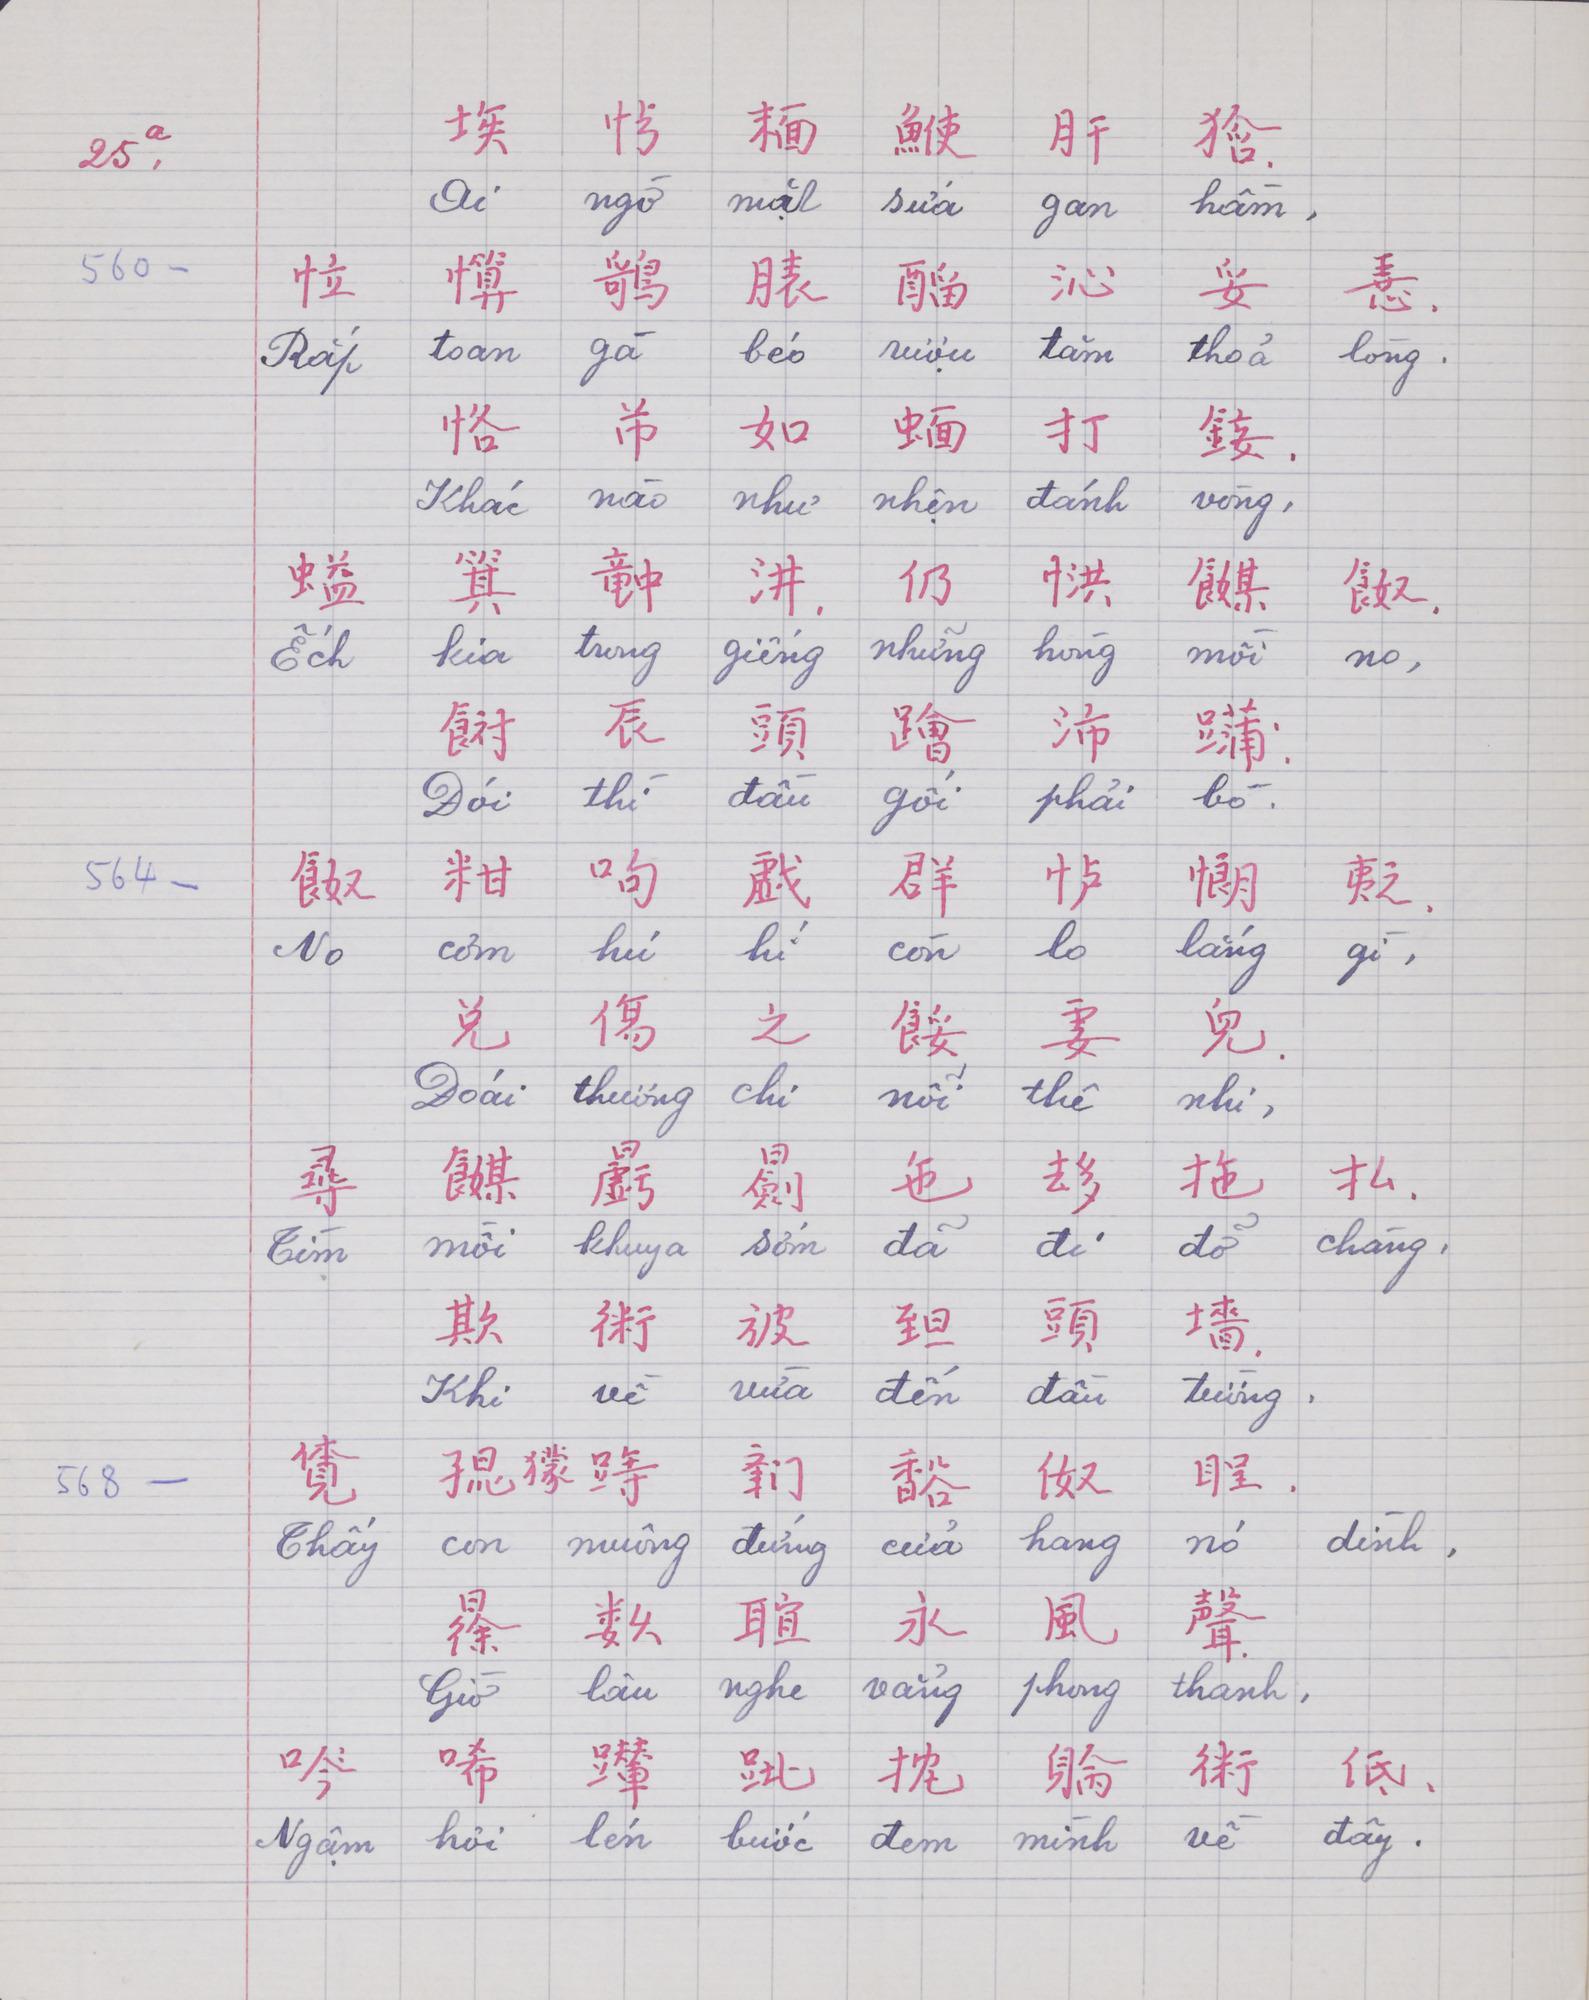 25a.
埃 𢗉 𩈘 𩵽 肝 㺺.
Ai ngờ mặt sứa gan hầm,
560 -
㤴 𢥈 𪃿 脿 醙 沁 妥 𢚸.
Rắp toan gà béo rượu tăm thoả lòng.
恪 芇 如 𧋆 打 𨨪.
Khác nào như nhện đánh vòng,
螠 箕 𥪝 汫, 仍 㤨 𩛸 𩛂.
Ếch kia trong giếng những hong mồi no,
𩛜 辰 頭 𨆝 沛 𨅾.
Đói thì đầu gối phải bò.
564 -
𩛂 粓 呴 戱 群 㤝 𢠯 𡗋.
No cơm hú hí còn lo lắng gì,
兑 傷 之 餒 妻 兒.
Đoái thương chi nỗi thê nhi,
尋 𩛸 𣌉 𣋽 㐌 𠫾 拖 払.
Tìm mồi khuya sớm đã đi đỗ chàng,
欺 術 𣃣 𦤾 頭 墙.
Khi về vừa đến đầu tường,
568 -
𧡊 𡥵 獴 𨅸 𨷯 𧯄 伮 𥄫.
Thấy con muông đứng cửa hang nó dình,
𣇞 𥹰 𦖑 永 風 聲.
Giờ lâu nghe vẳng phong thanh,
吟 唏 𨇒 𨀈 抌 𨉟 術 低.
Ngậm hơi lén bước đem mình về đây.